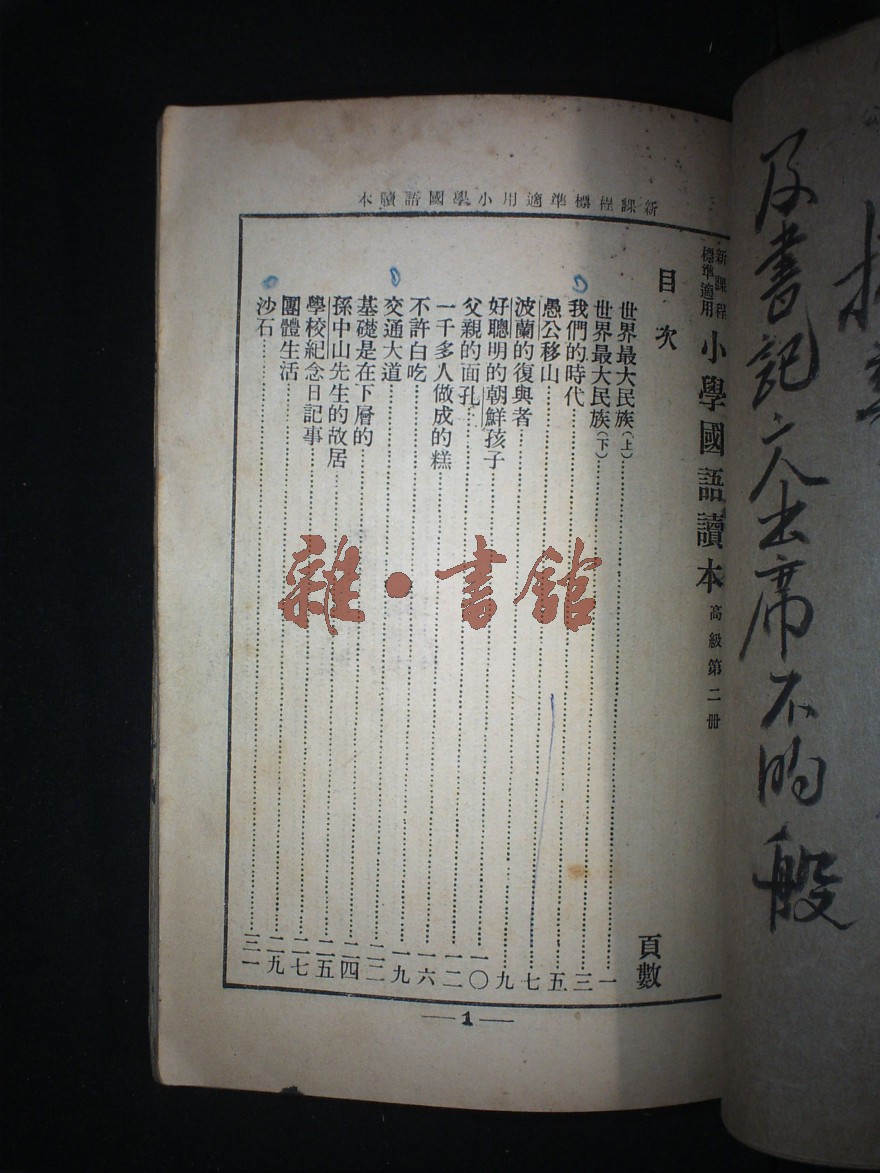 新課程標準適用小學國語讀本
新課程標準適用 小學國語讀本 高級第二冊
目次 頁數
世界最大民族(上)……一
世界最大民族(下)……三
我們的時代……五
愚公移山……七
波蘭的復興者……九
好聰明的朝鮮孩子……一〇
父親的面孔……一二
一千多人做成的糕……一六
不許白吃……一九
交通大道……二二
基礎是在下層的……二四
孫中山先生的故居……二五
學校紀念日記事……二七
團體生活……二九
沙石……三一
—1—
及書記二人出席不的般
雜·書館